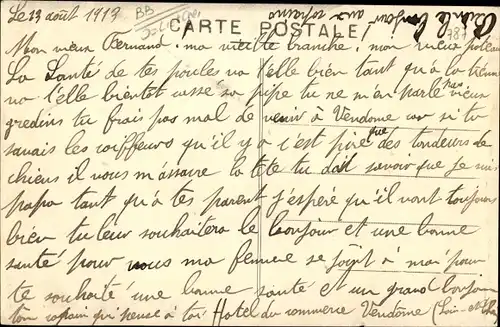 Le 23 août 1913
CARTE POSTALE
Mon vieux Bernand. ma vieille branche, mon vieux poteau
La Santé de tes poules va t'elle bien tant qu'à la tienne
va t'elle bientot casse sa pipe tu ne m'en parle rien vieux
gredins tu frais pas mal de venir à Vendome car si tu
savais les coiffeurs qu'il y a c'est pire que des tondeurs de
chiens il vous m'assure la tête tu dois savoir que je suis
papa tant qu'a tes parent j'espére qu'il vont toujours
bien tu leur souhaitera le bonjour et une bonne
santé pour vous ma femme se joint à moi pour
te souhaité une bonne santé et un grand bonjour
ton copain qui pense à toi Hotel du commerce Vendome (Loir-et-